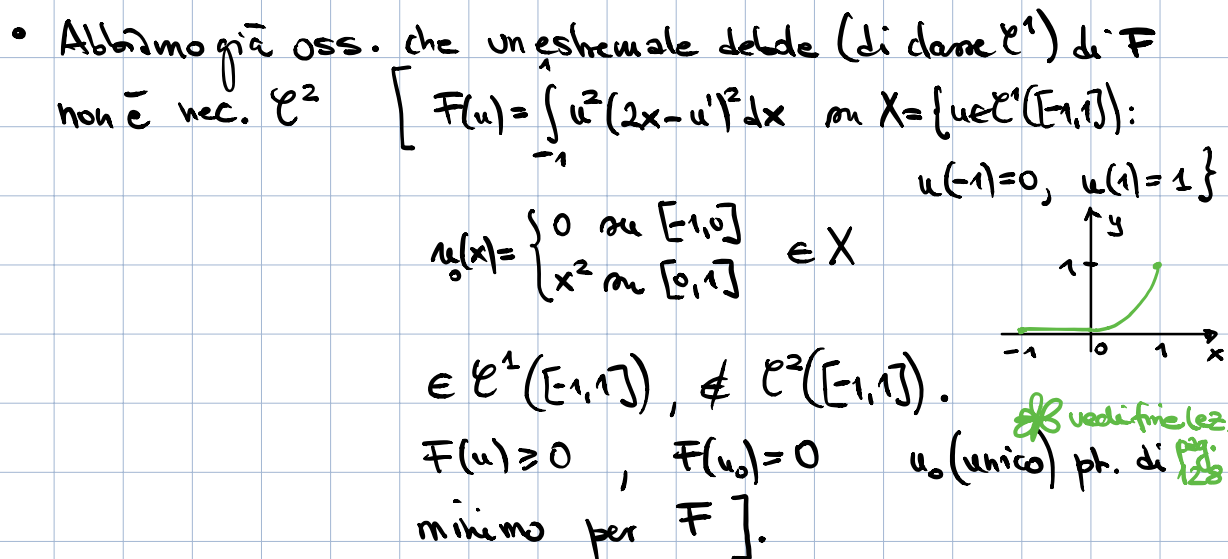 • Abbiamo già oss. che un estremale debole (di classe C¹) di F
non è nec. C² [ F(u) = ∫₋₁¹ u²(2x-u')² dx su X = {u∈C¹([-1,1]):
u(-1)=0, u(1)=1}
u₀(x) = { 0 su [-1,0]
x² su [0,1] ∈ X
y
1
-1 0 1 x
∈ C¹([-1,1]), ∉ C²([-1,1]).
vedi fine lez.
F(u) ⩾ 0, F(u₀)=0 u₀ (unico) pt. di pag. 128
minimo per F ].